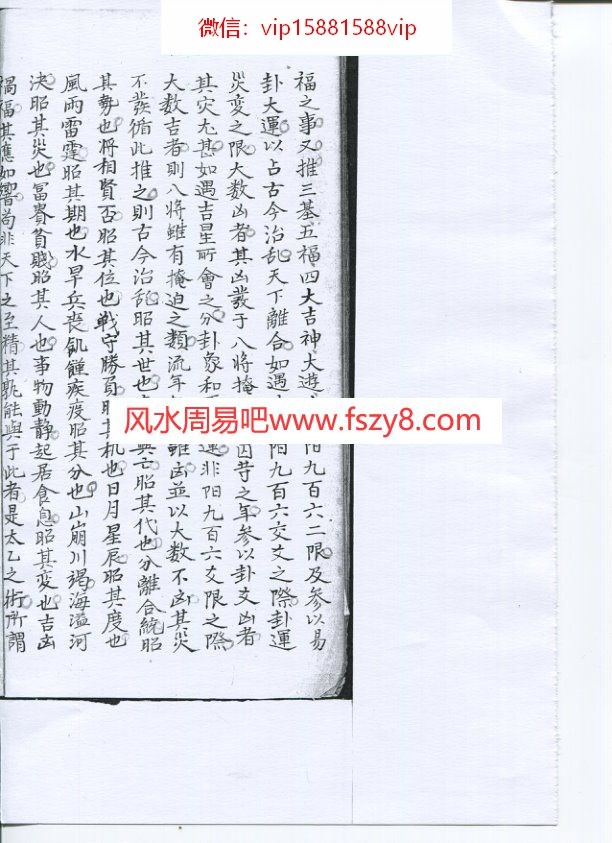 微信：vip15881588vip
福之事又推三基五福四大吉神大遊 阳九百六二限及参以易
卦大運以占古今治乱天下離合如遇 阳九百六交爻之際卦運
災変之限大数凶者其凶發于八将掩 囚 之年参以卦爻凶者
其灾尤甚如遇吉星所會之分卦象和 運非阳九百六爻限之際
大数吉者則八将雖有掩迫之類流年 雖凶並以大数不凶其災
不發循此推之則古今治乱昭其世也 興亡昭其代也分離合統昭
其勢也将相賢否昭其位也戦守勝負昭其机也日月星辰昭其度也
風雨雷霆昭其期也水旱兵喪飢饉疾疫昭其分也山崩川竭海溢河
决昭其災也冨貴貧賤昭其人也事物動静起居食息昭其変也吉凶
禍福其應如響尚非天下之至精其孰能與于此者是太乙之術所謂
风水周易吧www.fszy8.com